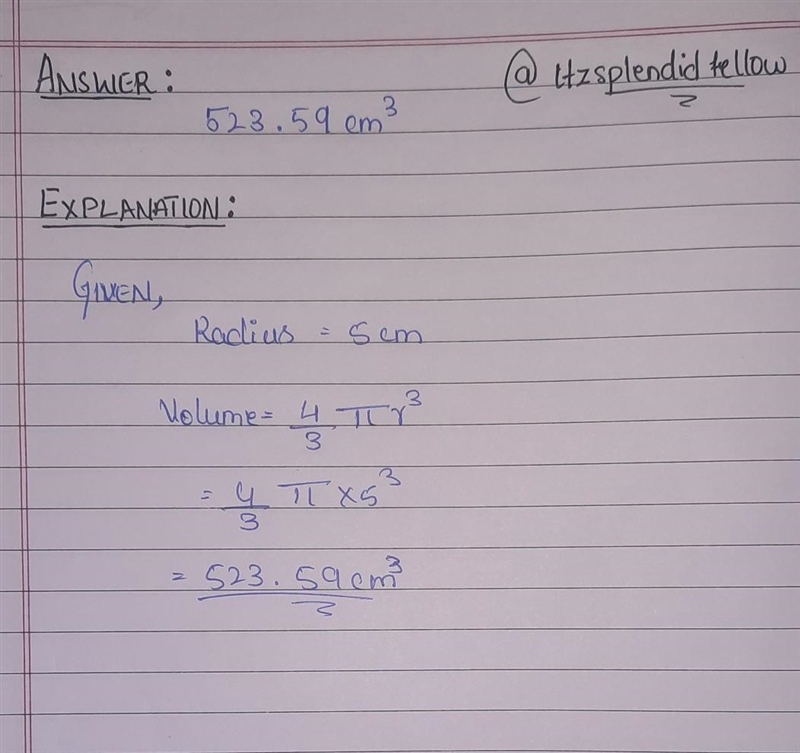 ANSWER: @ Itzsplendid fellow
523.59 cm³
EXPLANATION:
GIVEN,
Radius = 5 cm
Volume = 4/3 π r³
= 4/3 π × 5³
= 523.59 cm³